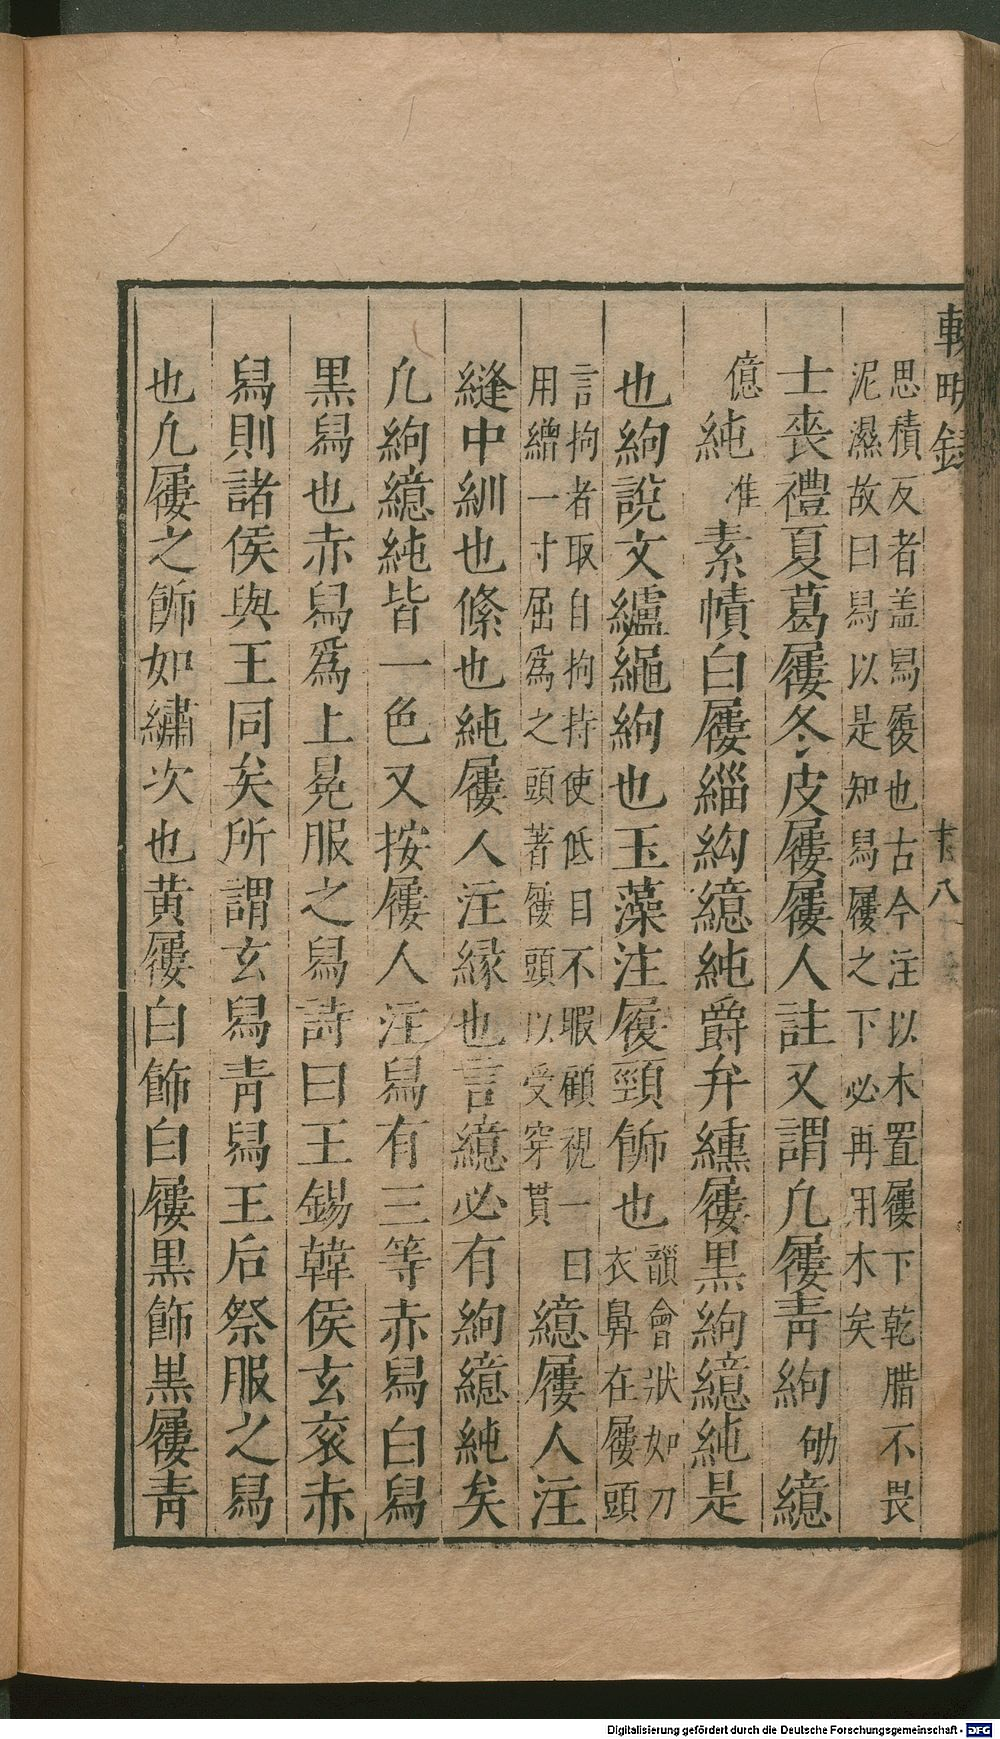 思積反者盖舄履也古今注以木置屨下乾腊不畏
泥濕故曰舄以是知舄屨之下必再用木矣
士喪禮夏葛屨冬皮屨屨人註又謂凢屨青絇劬繶
億純准素幘白屨緇絇繶純爵弁纁屨黒絇繶純是
也絇說文纑繩絇也玉藻注履頸飾也韻會狀如刀
衣鼻在屨頭
言拘者取自拘持使低目不暇顧視一曰
用繒一寸屈爲之頭著屨頭以受穿貫
繶屨人注
縫中紃也絛也純屨人注縁也言繶必有絇繶純矣
凢絇繶純皆一色又按屨人注舄有三等赤舄白舄
黒舄也赤舄爲上冕服之舄詩曰王錫韓侯玄衮赤
舄則諸侯與王同矣所謂玄舄青舄王后祭服之舄
也凢屨之飾如繡次也黄屨白飾白屨黒飾黒屨青
十八
Digitalisierung gefördert durch die Deutsche Forschungsgemeinschaft - DFG